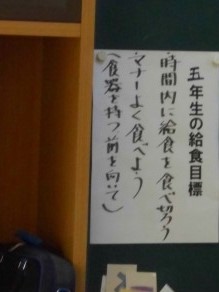 五年生の給食目標
・時間内に給食を食べ切ろう
・マナーよく食べよう
(食器を持つ前を向いて)